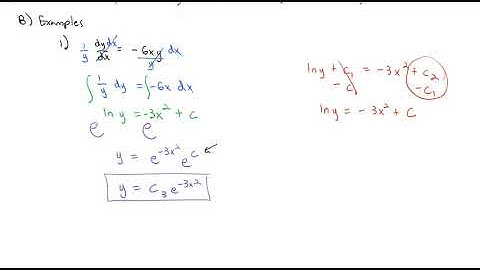 B) Examples
1) 1/y dy/dx dx = -6xy/y dx
∫ 1/y dy = ∫ -6x dx
e^(ln y) = e^(-3x² + c)
y = e^(-3x²) e^c
y = C₃ e^(-3x²)
ln y + C₁ = -3x² + C₂
-C₁ -C₁
ln y = -3x² + C